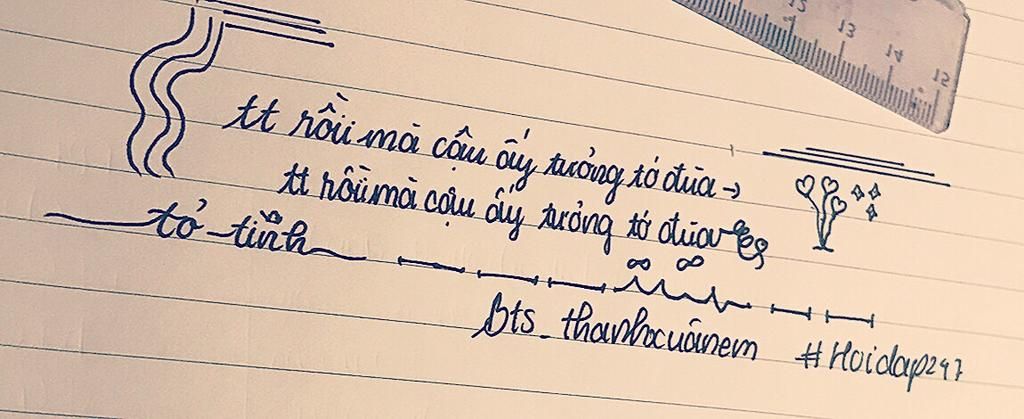 tt rồi mà cậu ấy tưởng tớ đùa →
tt rồi mà cậu ấy tưởng tớ đùa
tỏ tình
Bts_thanhxuânem
#Hoidap247
12 13 14 15